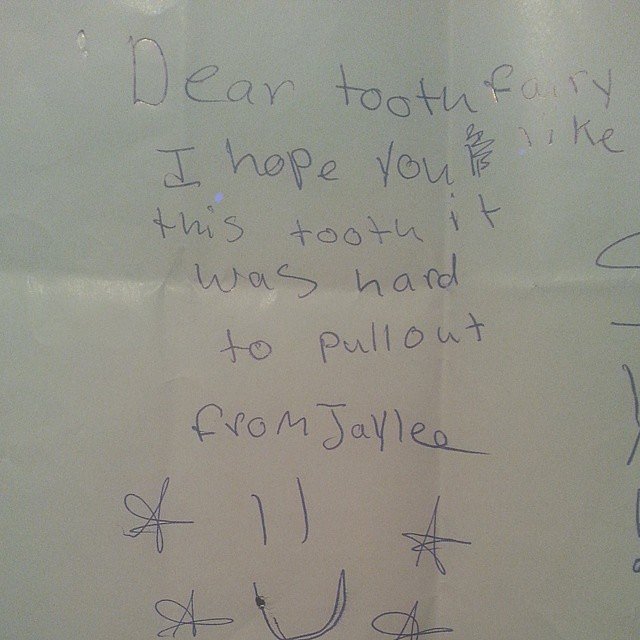 Dear tooth fairy
I hope you like
this tooth it
was hard
to pull out
from Jaylee